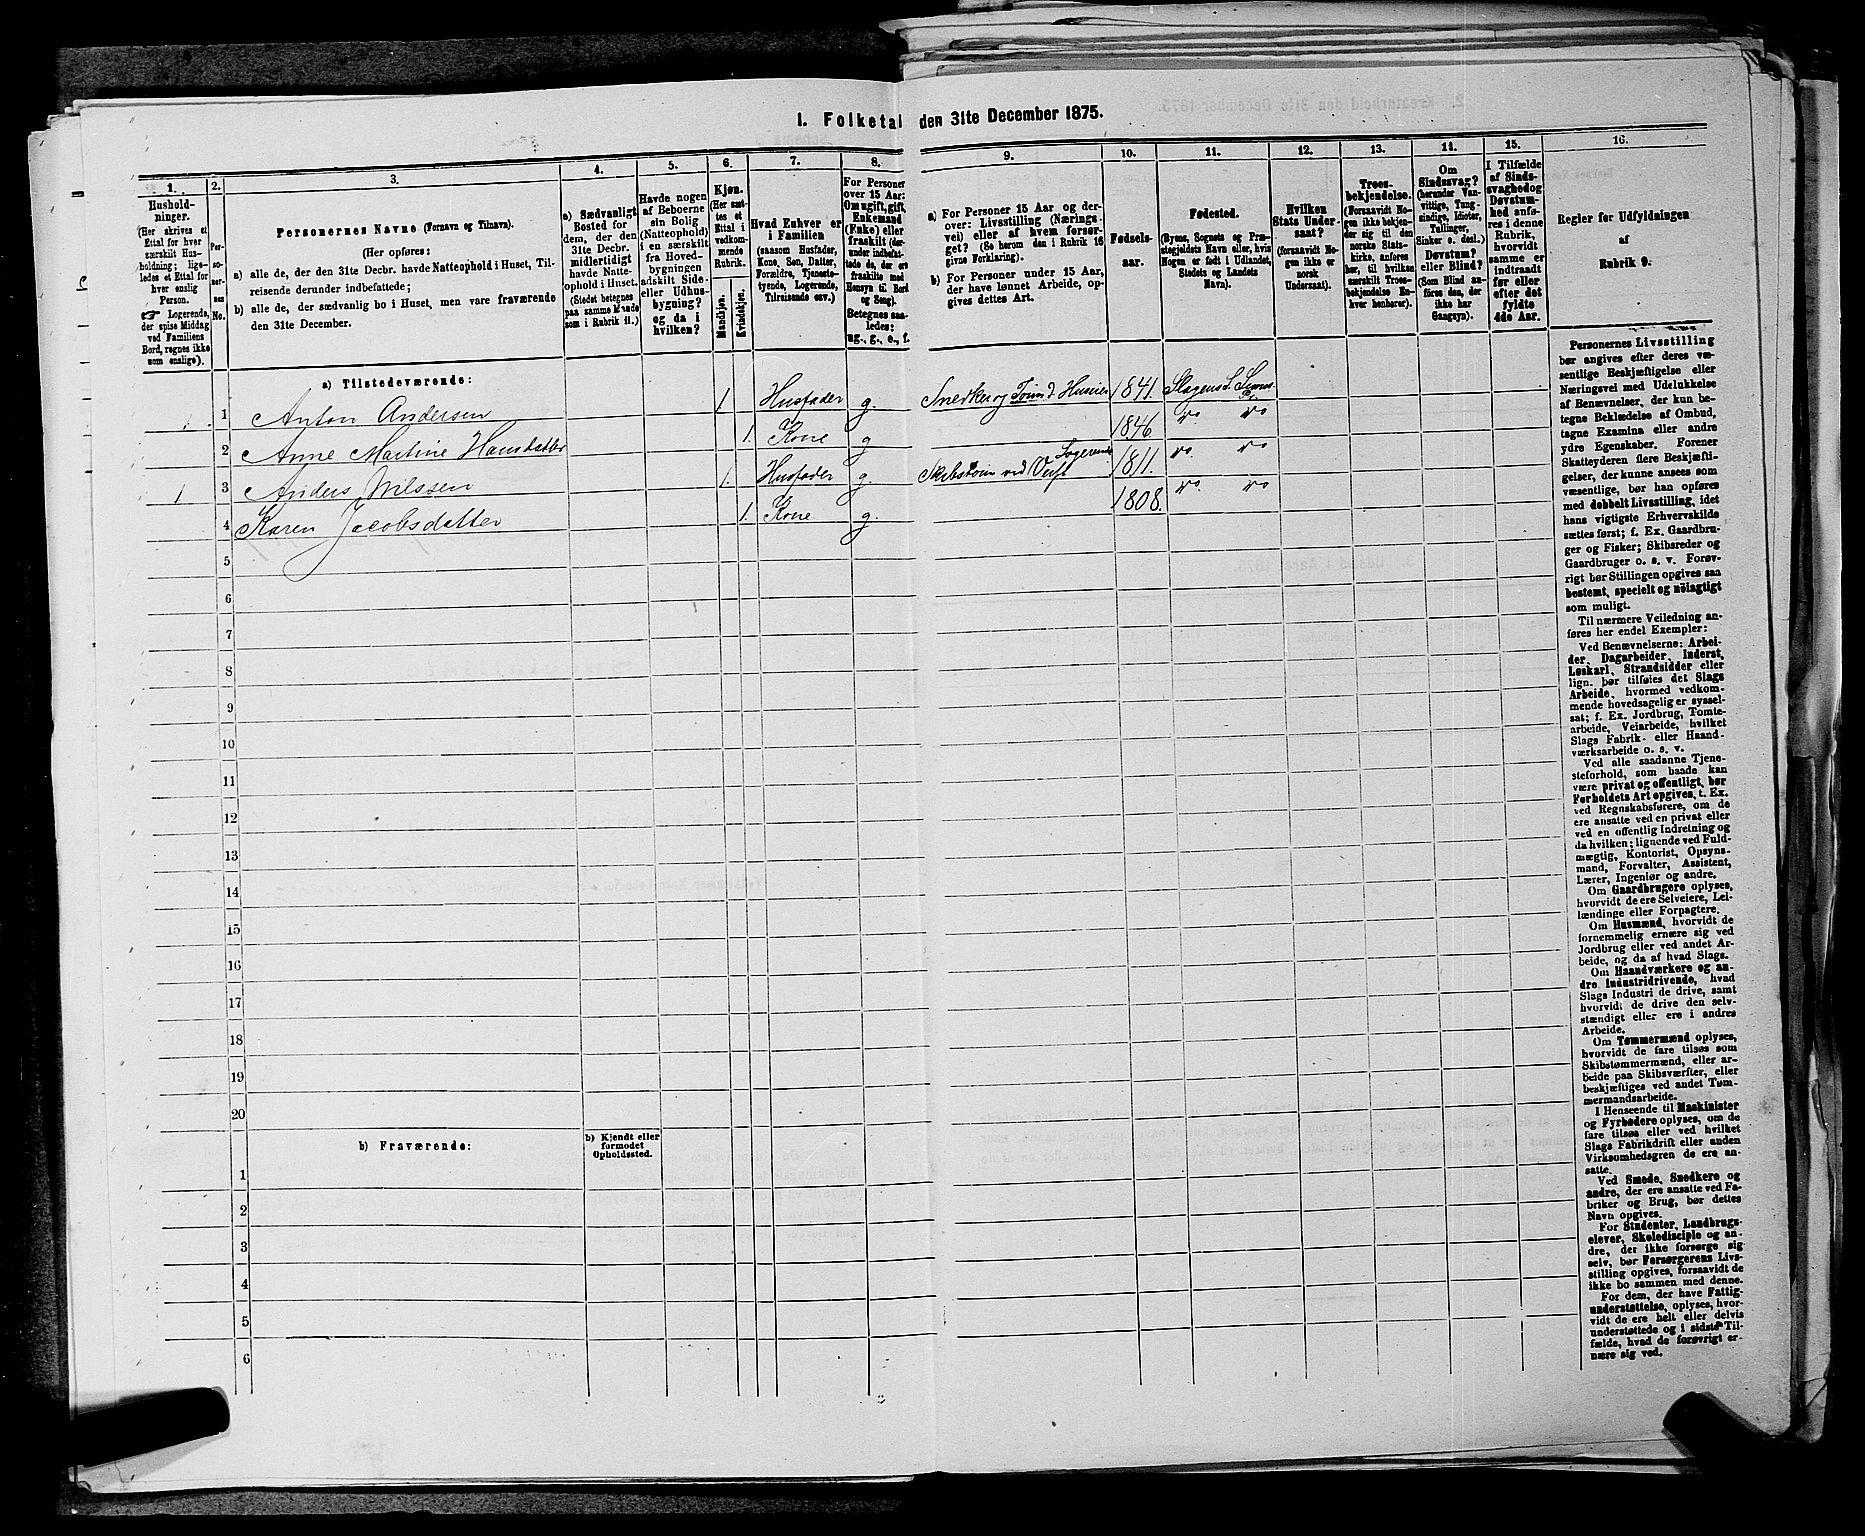 I. Folketal den 31te December 1875.
1.
2.
3.
4.
5.
6.
7.
8.
9.
10.
11.
12.
13.
14.
15.
16.
Hushold-
ninger.
(Her skrives et
Ettal for hver
særskilt Hus-
holdning; lige-
ledes et Ettal for
hver enslig
Person.
☞ Logerende,
der spise Middag
ved Familiens
Bord, regnes ikke
som enslige).
Per-
so-
ner-
nes
No.
Personernes Navne (Fornavn og Tilnavn).
(Her opføres:
a) alle de, der den 31te Decbr. havde Natteophold i Huset, Til-
reisende derunder indbefattede;
b) alle de, der sædvanlig bo i Huset, men vare fraværende
den 31te December.
a) Sædvanligt
Bosted for
dem, der den
31te Decbr.
midlertidigt
havde Natte-
ophold i Huset.
(Stedet betegnes
paa samme Maade
som i Rubrik 11.)
Havde nogen
af Beboerne
sin Bolig
(Natteophold)
i en særskilt
fra Hoved-
bygningen
adskilt Side-
eller Udhus-
bygning?
og da i
hvilken?
Kjøn.
(Her sæt-
tes et
Ettal i
vedkom-
mende
Rubrik.
Mandkjøn.
Kvindekjøn.
Hvad Enhver er
i Familien
(saasom Husfader,
Kone, Søn, Datter,
Forældre, Tjeneste-
tyende, Logerende,
Tilreisende osv.)
For Personer
over 15 Aar:
Om ugift, gift,
Enkemand
(Enke) eller
fraskilt (der-
under indbefat-
tede de, der ere
fraskilte med
Hensyn til Bord
og Seng).
Betegnes saa-
ledes:
ug., g., e., f.
a) For Personer 15 Aar og der-
over: Livsstilling (Nærings-
vei) eller af hvem forsør-
get? (Se herom den i Rubrik 16
givne Forklaring).
b) For Personer under 15 Aar,
der have lønnet Arbeide, op-
gives dettes Art.
Fødsels-
aar.
Fødested.
(Byens, Sognets og Præ-
stegjeldets Navn eller, hvis
Nogen er født i Udlandet,
Stedets og Landets
Navn).
Hvilken
Stats Under-
saat?
(forsaavidt No-
gen ikke er
norsk
Undersaat).
Troes-
bekjendelse.
(Forsaavidt No-
gen ikke bekjen-
der sig til den
norske Stats-
kirke, anføres
her, til hvilken
særskilt Troes-
bekjendelse En-
hver henhører).
Om
Sindssvag?
(herunder Van-
vittige, Tung-
sindige, Idioter,
Tullinger,
Sinker o. desl.)
Døvstum?
eller Blind?
(Som Blind an-
føres den, der
ikke har
Gangsyn).
I Tilfælde
af Sinds-
svaghed og
Døvstum-
hed anfø-
res i denne
Rubrik,
hvorvidt
samme er
indtraadt
før eller
efter det
fyldte
4de Aar.
Regler for Udfyldningen
af
Rubrik 9.
a) Tilstedeværende:
1 1 Anton Andersen 1 Husfader g. Snedker og 1841. Slagens S.
2 Anne Martine Hansdatter 1. Kone g 1846 do do
1 3 Anders Nilssen 1. Husfader g. ved Verft 1811. do do
4 Karen Jacobsdatter 1. Kone g. 1808. do do
5
6
7
8
9
10
11
12
13
14
15
16
17
18
19
20
b) Fraværende:
b) Kjendt eller
formodet
Opholdssted.
1
2
3
4
5
6
Personernes Livsstilling
bør angives efter deres væ-
sentlige Beskjæftigelse eller
Næringsvei med Udelukkelse
af Benævnelser, der kun be-
tegne Beklædelse af Ombud,
tagne Examina eller andre
ydre Egenskaber. Forener
Skatteyderen flere Beskjæfti-
gelser, der kunne ansees som
væsentlige, bør han opføres
med dobbelt Livsstilling, idet
hans vigtigste Erhvervskilde
sættes først; f. Ex. Gaardbru-
ger og Fisker; Skibsreder og
Gaardbruger o. s. v. Forøv-
rigt bør Stillingen opgives saa
bestemt, specielt og nöiagtigt
som muligt.
Til nærmere Veiledning an-
føres her endel Exempler:
Ved Benævnelserne: Arbei-
der, Dagarbeider, Inderst,
Løskarl, Strandsidder eller
lign. bør tilføies det Slags
Arbeide, hvormed vedkom-
mende hovedsagelig er syssel-
sat; f. Ex. Jordbrug, Tomte-
arbeide, Veiarbeide, hvilket
Slags Fabrik- eller Haand-
værksarbeide o. s. v.
Ved alle saadanne Tjene-
steforhold, som baade kan
være privat og offentligt, bør
Forholdets Art opgives, t. Ex.
ved Regnskabsførere, om de
ere ansatte ved en privat eller
ved en offentlig Indretning og
da hvilken; lignende ved Fuld-
mægtig, Kontorist, Opsyns-
mand, Forvalter, Assistent,
Lærer, Ingeniør og andre.
Om Gaardbrugere oplyses,
hvorvidt de ere Selveiere, Lei-
lændinge eller Forpagtere.
Om Husmænd, hvorvidt de
fornemmelig ernære sig ved
Jordbrug eller ved andet Ar-
beide, og da af hvad Slags.
Om Haandværkere og an-
dre Industridrivende, hvad
Slags Industri de drive, samt
hvorvidt de drive den selv-
stændigt eller ere i andres
Arbeide.
Om Tømmermænd oplyses,
hvorvidt de fare tilsøs som
Skibstømmermænd, eller ar-
beide paa Skibsværfter, eller
beskjæftiges ved andet Tøm-
mermandsarbeide.
I Henseende til Maskinister
og Fyrbødere oplyses, om de
fare tilsøs eller ved hvilket
Slags Fabrikdrift eller anden
Virksomhedsgren de ere an-
satte.
Ved Smede, Snedkere og
andre, der ere ansatte ved Fa-
briker og Brug, bør dettes
Navn opgives.
For Studenter, Landbrugs-
elever, Skoledisciple og an-
dre, der ikke forsørge sig
selv, bør Forsørgerens Livs-
stilling opgives, forsaavidt de
ikke bo sammen med denne.
For dem, der have Fattig-
understøttelse, oplyses, hvor-
vidt de ere helt eller delvis
understøttede og i sidste Til-
fælde, hvad de forøvrigt er-
nære sig ved.